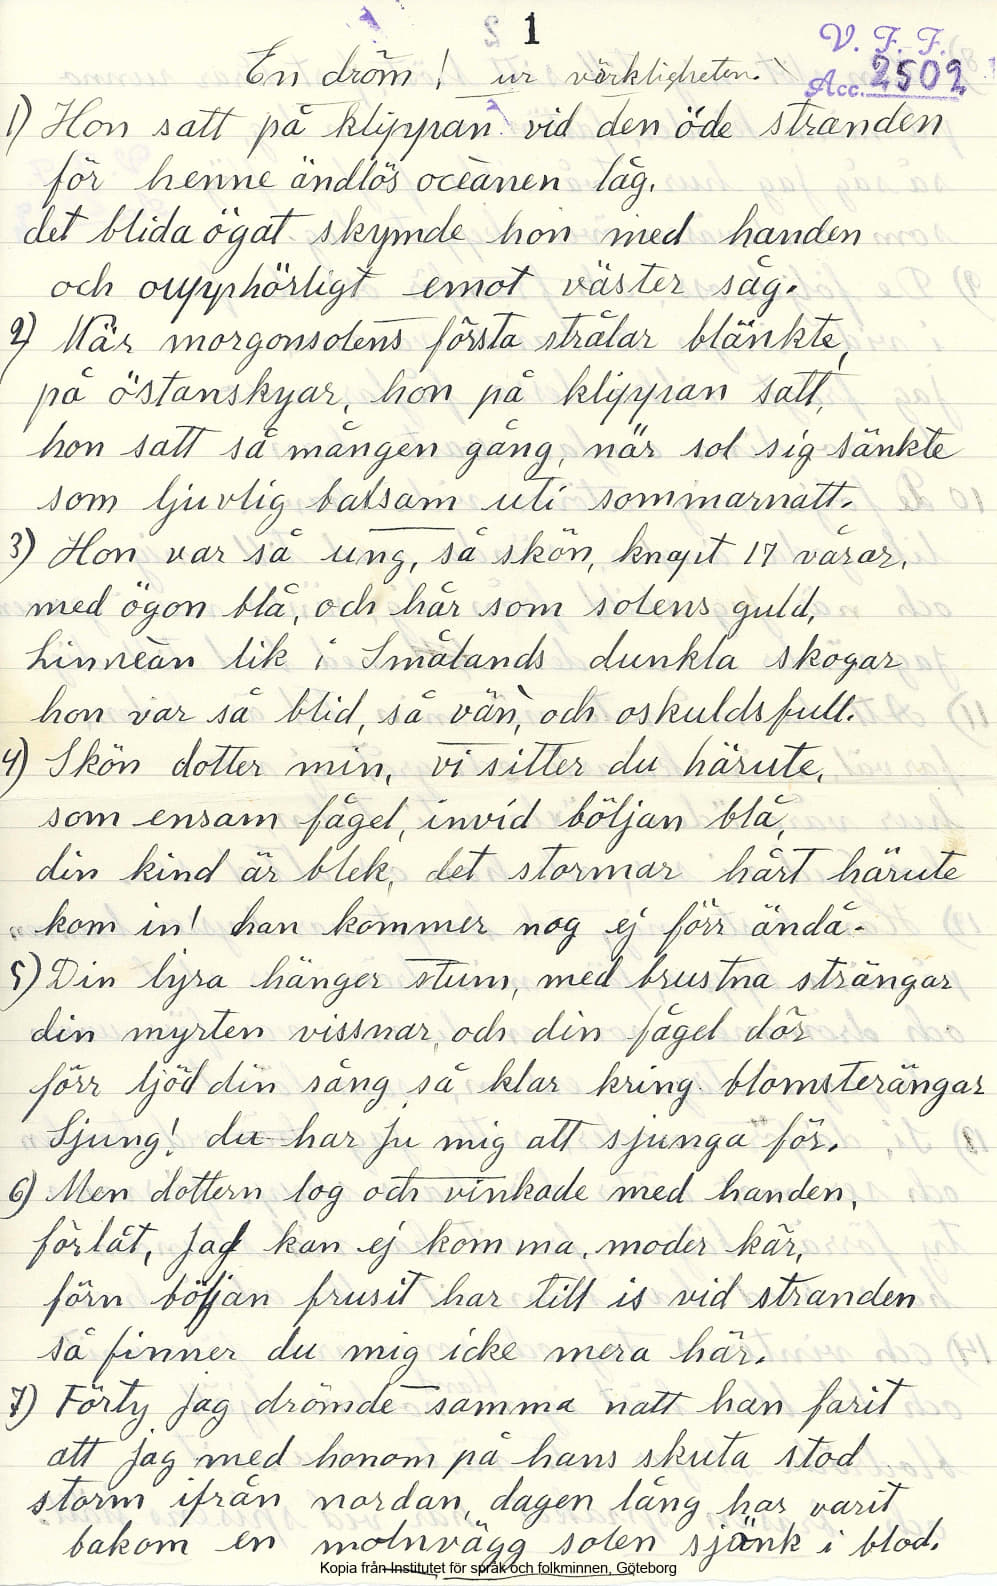 1
V. F. F.
Acc. 2502
En dröm! ur värkligheten.
1) Hon satt på klippan vid den öde stranden
för henne ändlös oceànen låg.
det blida ögat skymde hon med handen
och oupphörligt emot väster såg.
2) När morgonsolens första strålar blänkte,
på östanskyar, hon på klippan satt,
hon satt så mången gång, när sol sig sänkte
som ljuvlig balsam uti sommarnatt.
3) Hon var så ung, så skön, knapt 17 vårar,
med ögon blå, och hår som solens guld,
Linneàn lik i Smålands dunkla skogar
hon var så blid, så vän, och oskuldsfull.
4) Skön dotter min, vi sitter du härute,
som ensam fågel, invid böljan blå,
din kind är blek, det stormar hårt härute
kom in! han kommer nog ej förr ändå.
5) Din lyra hänger stum, med brustna strängar
din myrten vissnar, och din fågel dör
förr ljöd din sång så klar kring blomsterängar
Sjung! du har ju mig att sjunga för.
6) Men dottern log och vinkade med handen,
förlåt, jag kan ej komma, moder kär,
förn böljan frusit har till is vid stranden
så finner du mig icke mera här.
7) Förty jag drömde samma natt han farit
att jag med honom på hans skuta stod
storm ifrån nordan, dagen lång har varit
bakom en molnvägg solen sjönk i blod.
Kopia från Institutet för språk och folkminnen, Göteborg